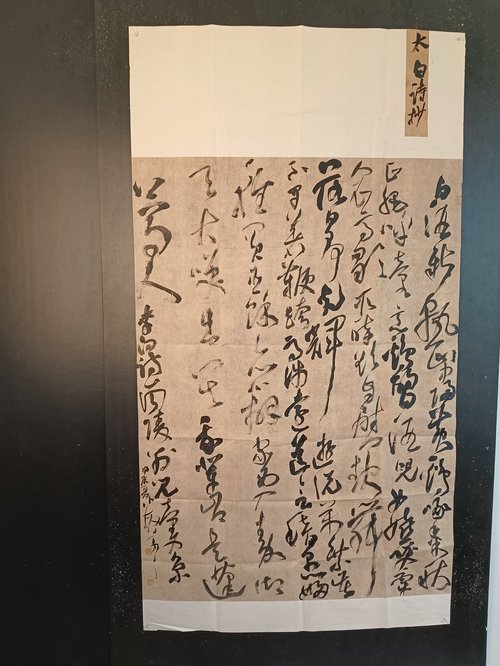 太白詩抄
白酒新熟山中歸黃雞啄黍秋
正肥呼童烹雞酌白酒兒女嬉笑牽
人衣高歌取醉欲自慰起舞
落日爭光輝游說萬乘苦
不早著鞭跨馬涉遠道會稽愚婦
輕買臣余亦辭家西入秦仰
天大笑出門去我輩豈是蓬
蒿人
李白詩南陵別兒童入京